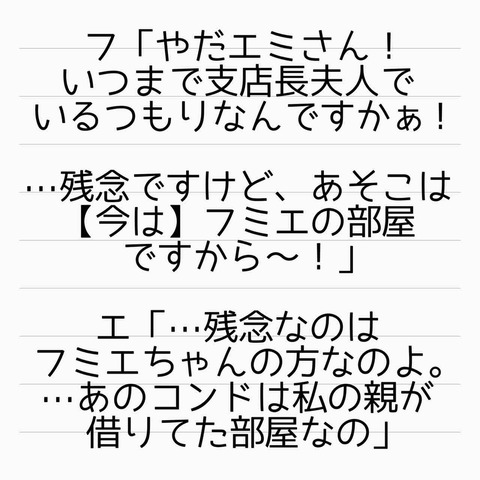 フ「やだエミさん！
いつまで支店長夫人で
いるつもりなんですかぁ！
…残念ですけど、あそこは
【今は】フミエの部屋
ですから〜！」
エ「…残念なのは
フミエちゃんの方なのよ。
…あのコンドは私の親が
借りてた部屋なの」